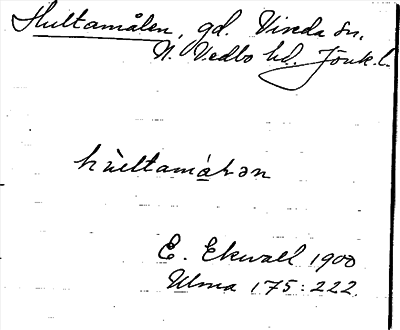 Hultamålen, gd. Vireda sn,
N. Vedbo hd. Jönk. l.
hùltamálən
E. Ekwall 1900
Ulma 175:222.